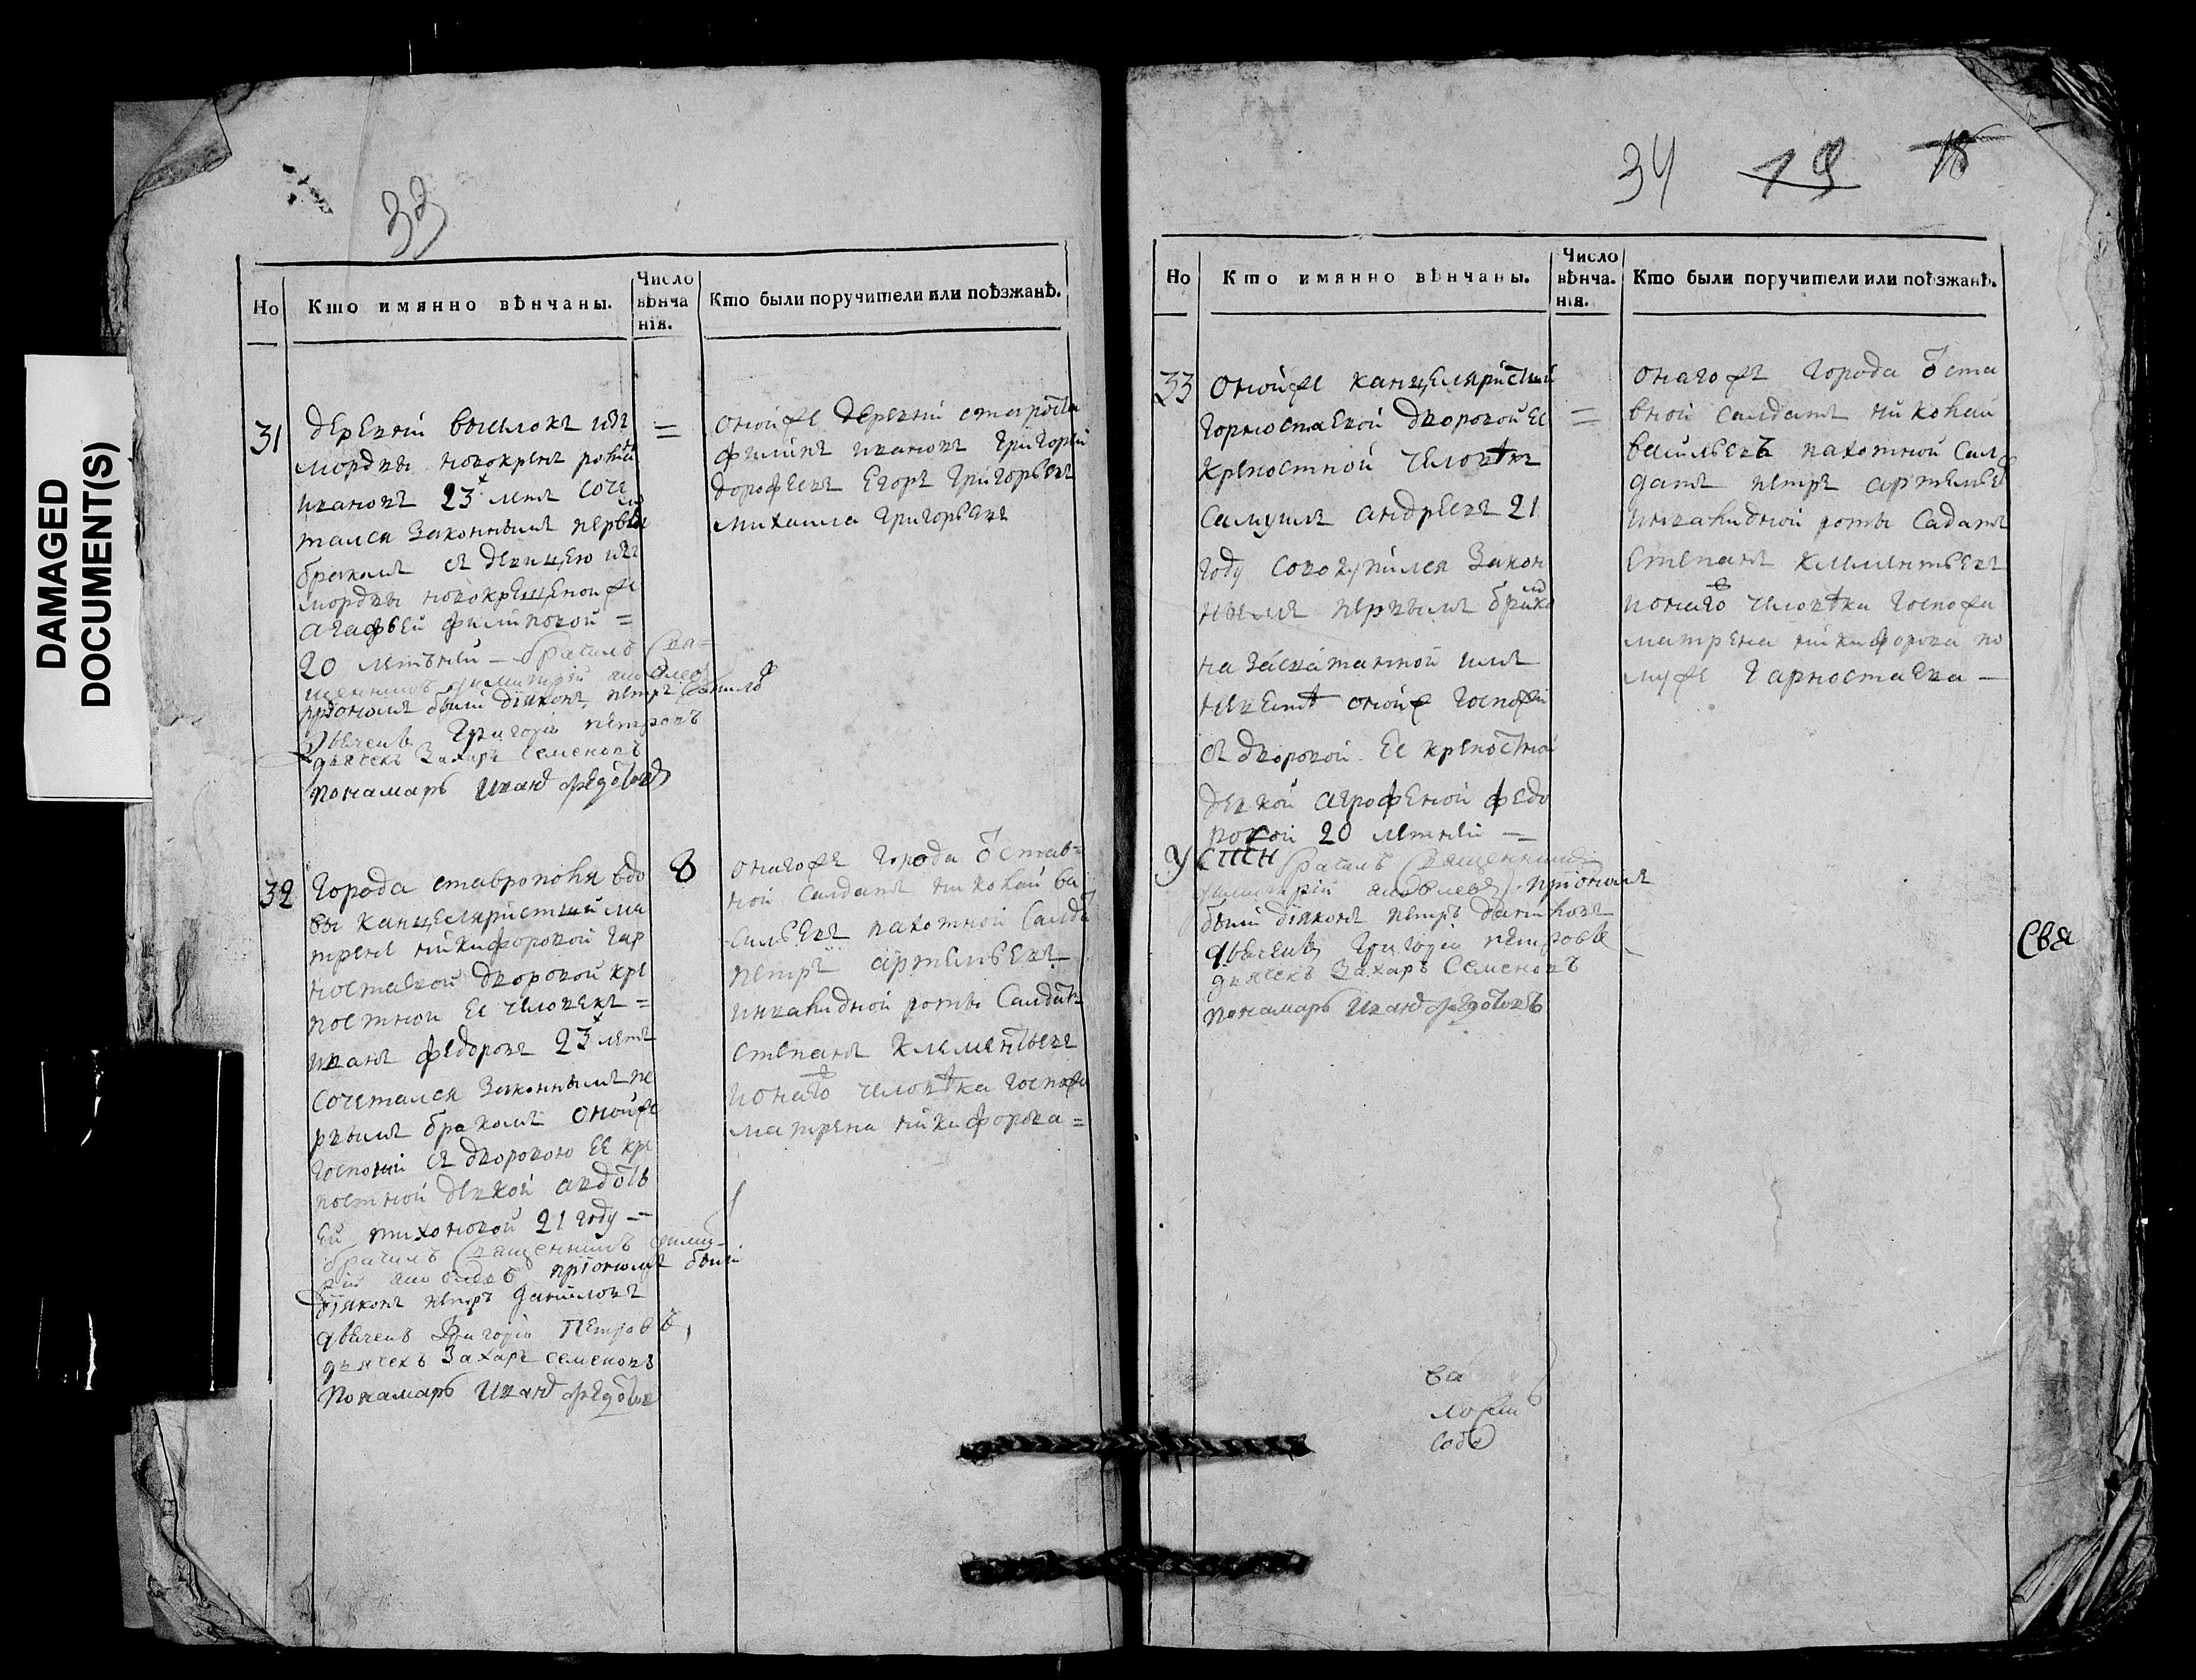 DAMAGED
DOCUMENT(S)
33
Но
Кто имянно вѣнчаны.
Число
вѣнча
нія.
Кто были поручители или поѣзжанѣ.
31
деревни выселокъ изъ
мордвы новокрещ
ивановъ 23 летъ соче
тался законнымъ первым
бракомъ съ девицею изъ
мордвы новокрещеной
агафьей филиповой =
20 летней – брачилъ свя=
щенникъ димитрий
при ономъ были діяконъ петръ данилов
Григорій петровъ
дьячекъ Захаръ Семеновъ
пономарь Иванъ федотовъ
=
оной же деревни староста
филипъ ивановъ григорий
дорофеевъ егоръ григорьевъ
михаила григорьевъ
32
Города ставрополя вдо
вы канцеляристши ма
трены никифоровой гар
ностаевой дворовой кре
постной ее человекъ =
иванъ федоровъ 23 летъ
сочетался законнымъ пе
рвымъ бракомъ оной же
госпожи съ дворовою ее кре
постной девкой авдоть
ей тихоновой 21 году =
браchилъ священникъ димит
рий при ономъ были
діяконъ петръ даниловъ
Григорій Петровъ
дьячекъ Захаръ семеновъ
пономарь Иванъ федотовъ
8
онагожъ города остав=
ной салдатъ николай ва
сильевъ пахотной салда
петръ артемьевъ
инвалидной роты салдатъ
степанъ клементьевъ
человѣка госпожа
матрена никифорова =
34 19 18
Но
Кто имянно вѣнчаны.
Число
вѣнча.
нія.
Кто были поручители или поѣзжанѣ.
33
оной же канцеляристши
горностаевой дворовой ее
крепостной человѣкъ
самуилъ андреевъ 21
году совокупился закон
нымъ первымъ брако
на
невестѣ оной госпожи
съ дворовой ее крепостной
девкой агрофеной федо
ровой 20 летней –
браchилъ священникъ
димитрий при ономъ
были діяконъ петръ даниловъ
Григорій петровъ
дьячекъ Захаръ Семеновъ
пономарь Иванъ федотовъ
=
онагожъ города оста
вной салдатъ николай
васильевъ пахотной сал
датъ петръ артемьев
инвалидной роты садатъ
степанъ клементьевъ
человѣка госпожа
матрена никифорова по
муже гарностаева –
Свя